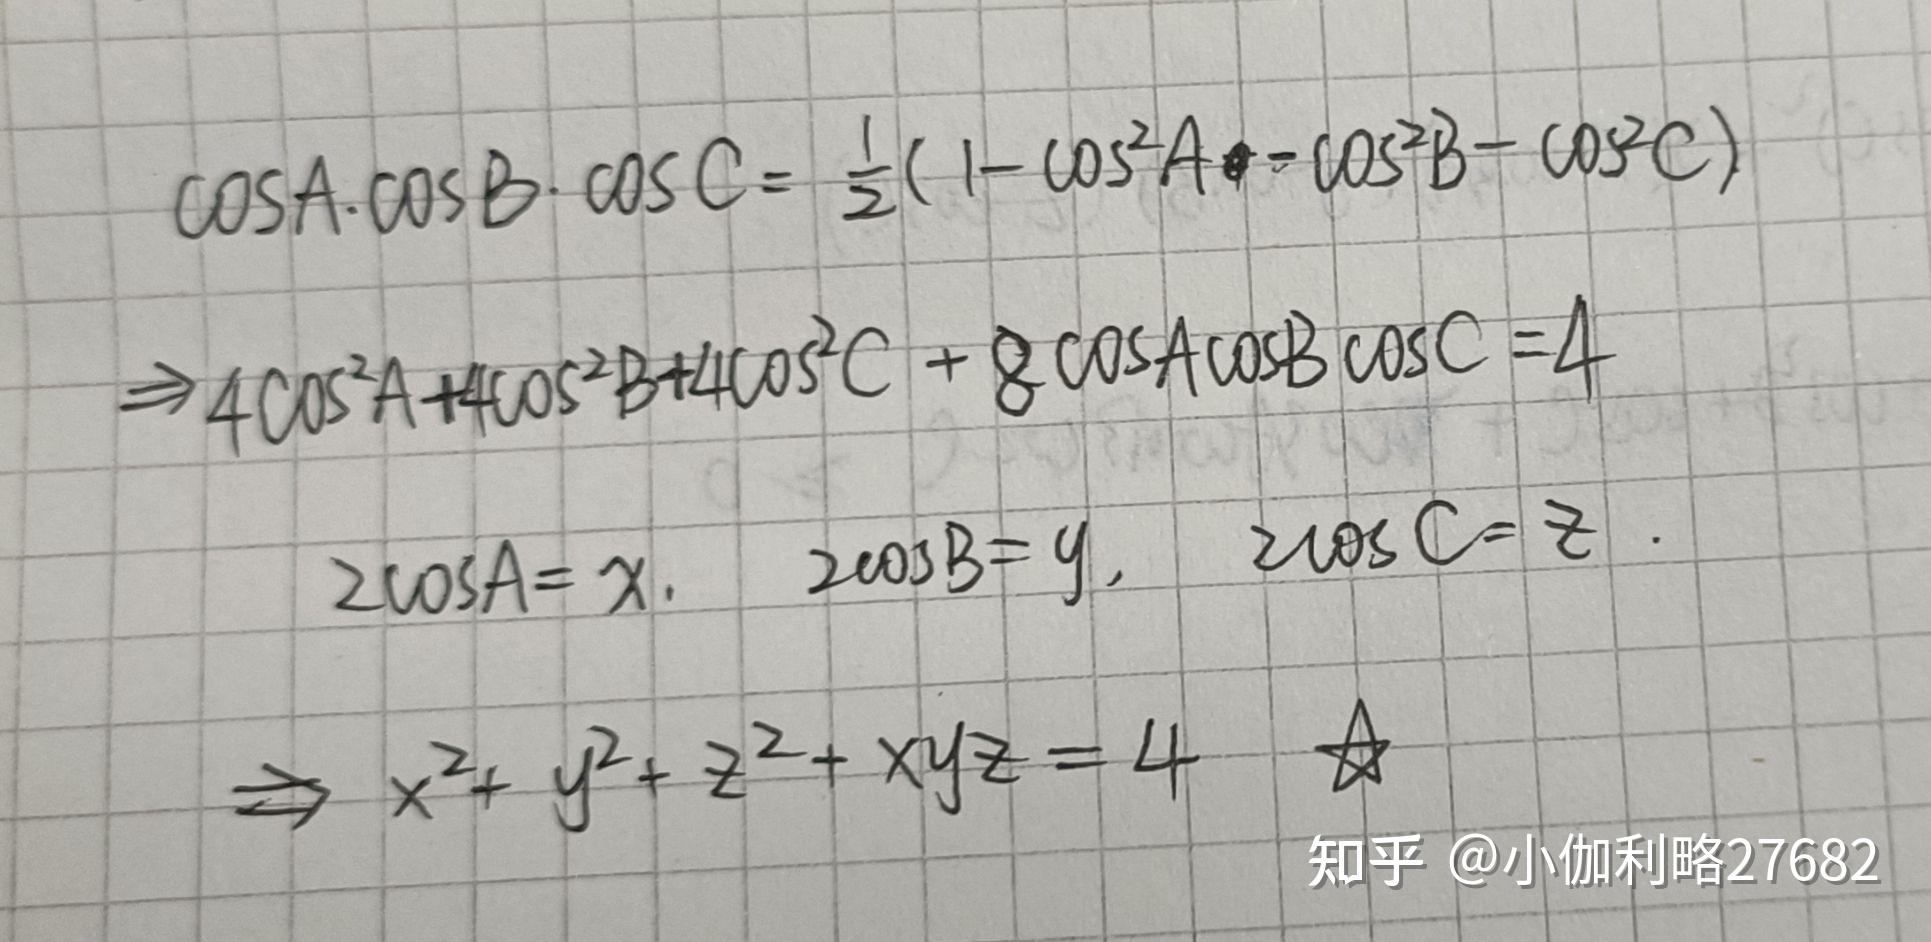 cosA·cosB·cosC = 1/2 (1 - cos²A - cos²B - cos²C)
⇒ 4cos²A + 4cos²B + 4cos²C + 8cosAcosBcosC = 4
2cosA = x. 2cosB = y, 2cosC = z.
⇒ x² + y² + z² + xyz = 4 ☆
知乎 @小伽利略27682